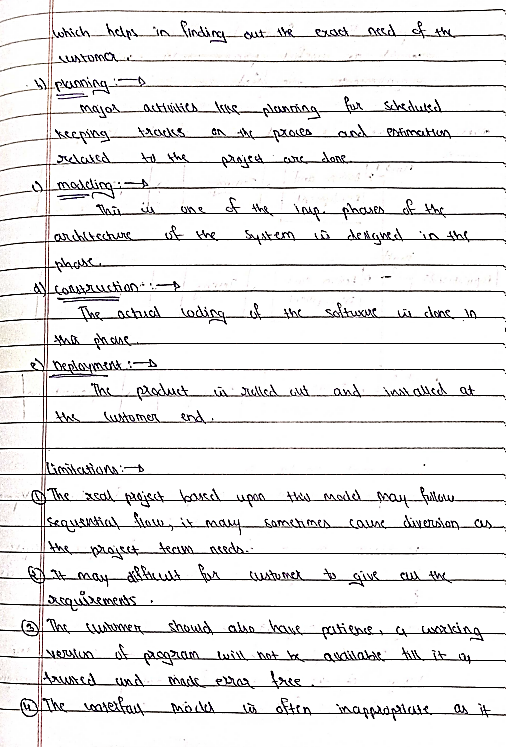 which helps in finding out the exact need of the
customer.
b) planning :→
major activities like planning for scheduled
keeping tracks on the proces and estimation
related to the project are done.
c) modeling :→
This is one of the imp. phases of the
architecture of the system is designed in the
phase.
d) construction :→
The actual coding of the software is done in
this phase.
e) Deployment :→
The product is rolled out and installed at
the customer end.
Limitations :→
① The real project based upon this model may follow
sequential flow, it may sometimes cause diversion as
the project team needs.
② It may difficult for customer to give all the
requirements.
③ The customer should also have patience, a working
version of program will not be available till it is
trusted and made error free.
④ The waterfall model is often inappropriate as it